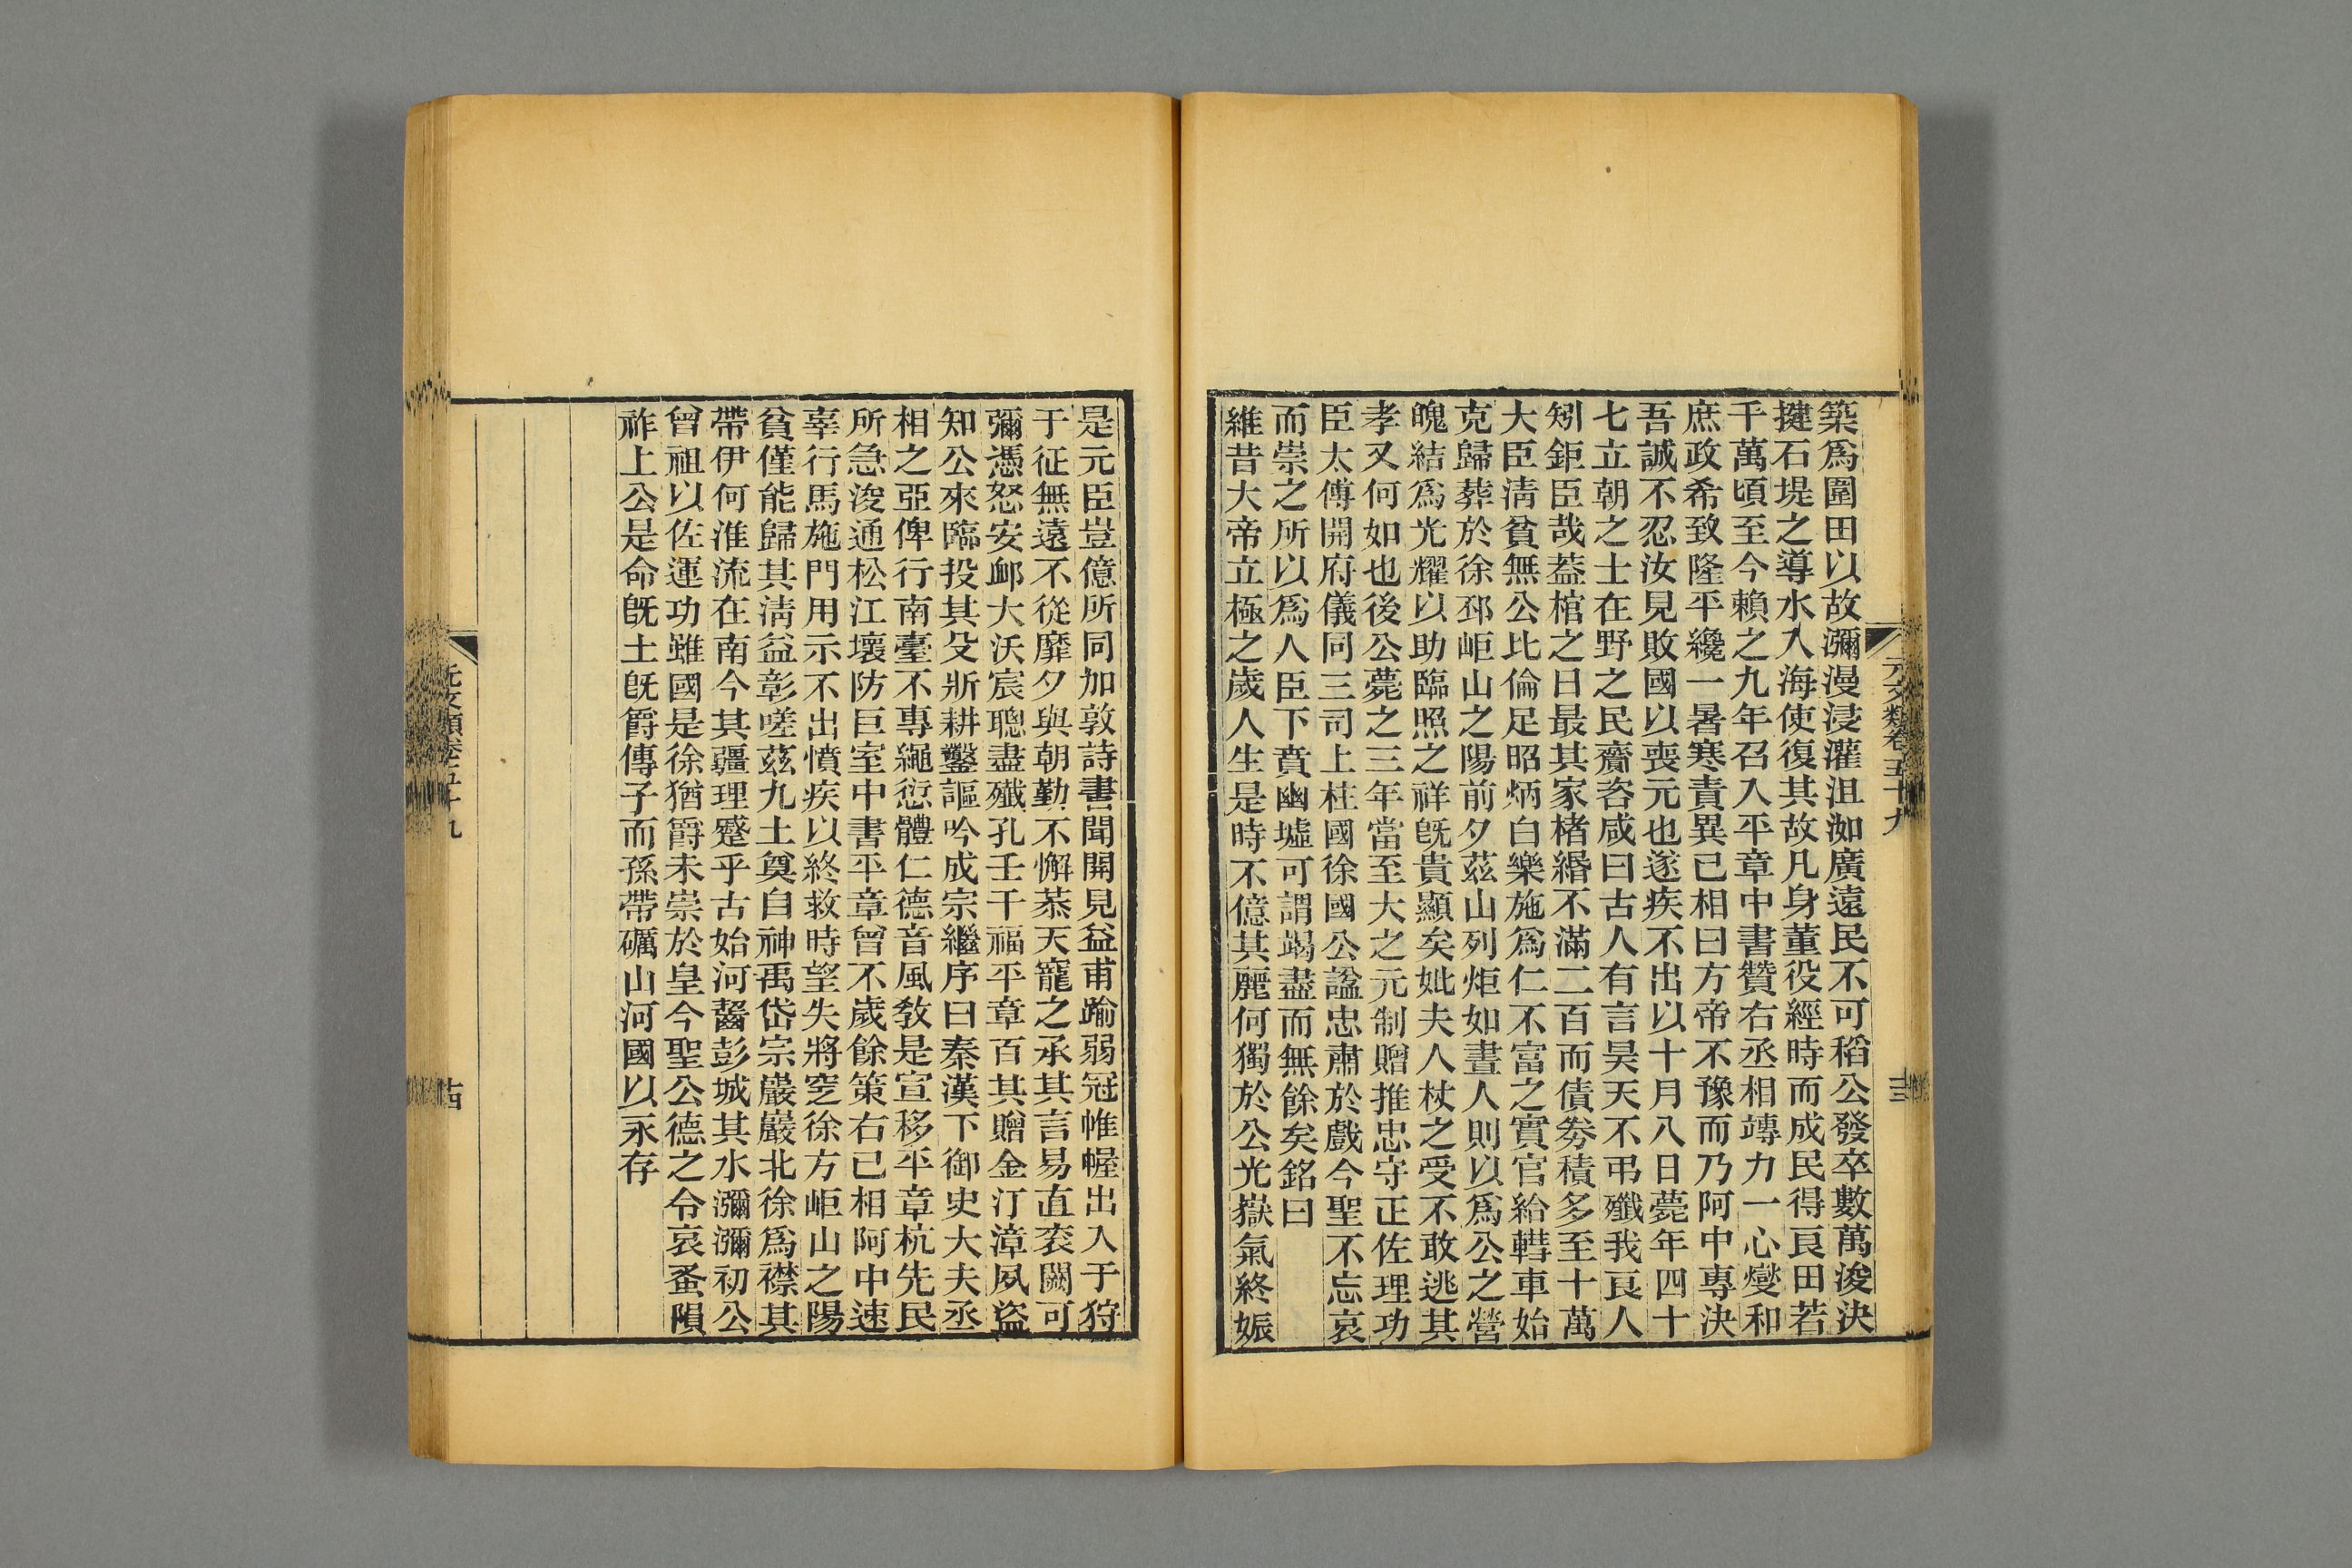 元文類卷五十九
十三
築爲圍田以故瀰漫浸灌沮洳廣遠民不可稻公發卒數萬浚決
揵石堤之導水入海使復其故凡身董役經時而成民得良田若
千萬頃至今賴之九年召入平章中書贊右丞相竱力一心燮和
庶政希致隆平纔一暑寒責異已相曰方帝不豫而乃阿中專決
吾誠不忍汝見敗國以喪元也遂疾不出以十月八日薨年四十
七立朝之士在野之民齎咨咸曰古人有言昊天不弔殲我良人
矧鉅臣哉葢棺之日最其家楮緡不滿二百而債劵積多至十萬
大臣淸貧無公比倫足昭炳白樂施爲仁不富之實官給轊車始
克歸葬於徐邳岠山之陽前夕茲山列炬如晝人則以爲公之營
魄結爲光耀以助臨照之祥旣貴顯矣妣夫人杖之受不敢逃其
孝又何如也後公薨之三年當至大之元制贈推忠守正佐理功
臣太傅開府儀同三司上柱國徐國公諡忠肅於戲今聖不忘哀
而崇之所以爲人臣下賁幽墟可謂竭盡而無餘矣銘曰
維昔大帝立極之歲人生是時不億其麗何獨於公光嶽氣終娠
是元臣豈億所同加敦詩書聞開見益甫踰弱冠帷幄出入于狩
于征無遠不從靡夕與朝勤不懈恭天寵之承其言易直衮闕可
彌憑怒安衈大沃宸聰盡殲孔壬干福平章百其贈金汀漳夙盜
知公來臨投其殳斨耕鑿謳吟成宗繼序曰秦漢下御史大夫丞
相之亞俾行南臺不專繩愆體仁德音風敎是宣移平章杭先民
所急浚通松江壞防巨室中書平章曾不歲餘策右已相阿中速
辜行馬施門用示不出憤疾以終救時望失將窆徐方岠山之陽
貧僅能歸其淸益彰嗟茲九土奠自神禹岱宗巖巖北徐爲襟其
帶伊何淮流在南今其疆理蹙乎古始河齧彭城其水瀰瀰初公
曾祖以佐運功雖國是徐猶爵未崇於皇今聖公德之令哀蚤隕
祚上公是命旣土旣爵傳子而孫帶礪山河國以永存
元文類卷五十九
十四